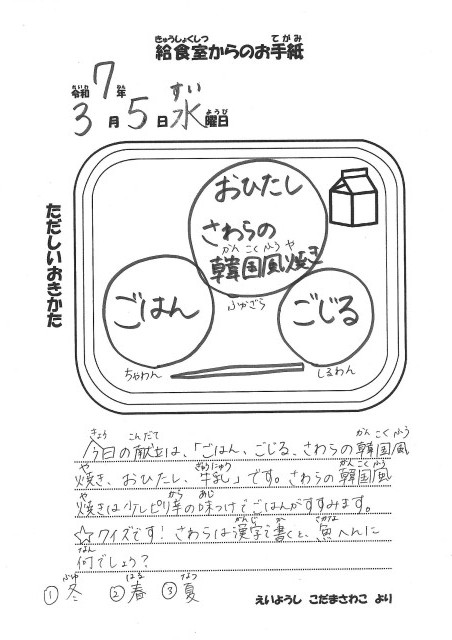 きゅうしょくしつ てがみ
給食室からのお手紙
れいわ ねん
令和7年
すい ようび
3月5日水曜日
ただしいおきかた
おひたし
さわらの
かんこくふうや
韓国風焼き
ごはん
ごじる
ふかざら
ちゃわん
しるわん
きょう こんだて かんこくふう
今日の献立は、「ごはん、ごじる、さわらの韓国風
や ぎゅうにゅう かんこくふう
焼き、おひたし、牛乳」です。さわらの韓国風
や から あじ
焼きは少しピリ辛の味つけでごはんがすすみます。
かんじ か さかな
☆クイズです!さわらは漢字で書くと、魚へんに
なん
何でしょう?
ふゆ はる なつ
①冬 ②春 ③夏
えいようし こだまさわこ より